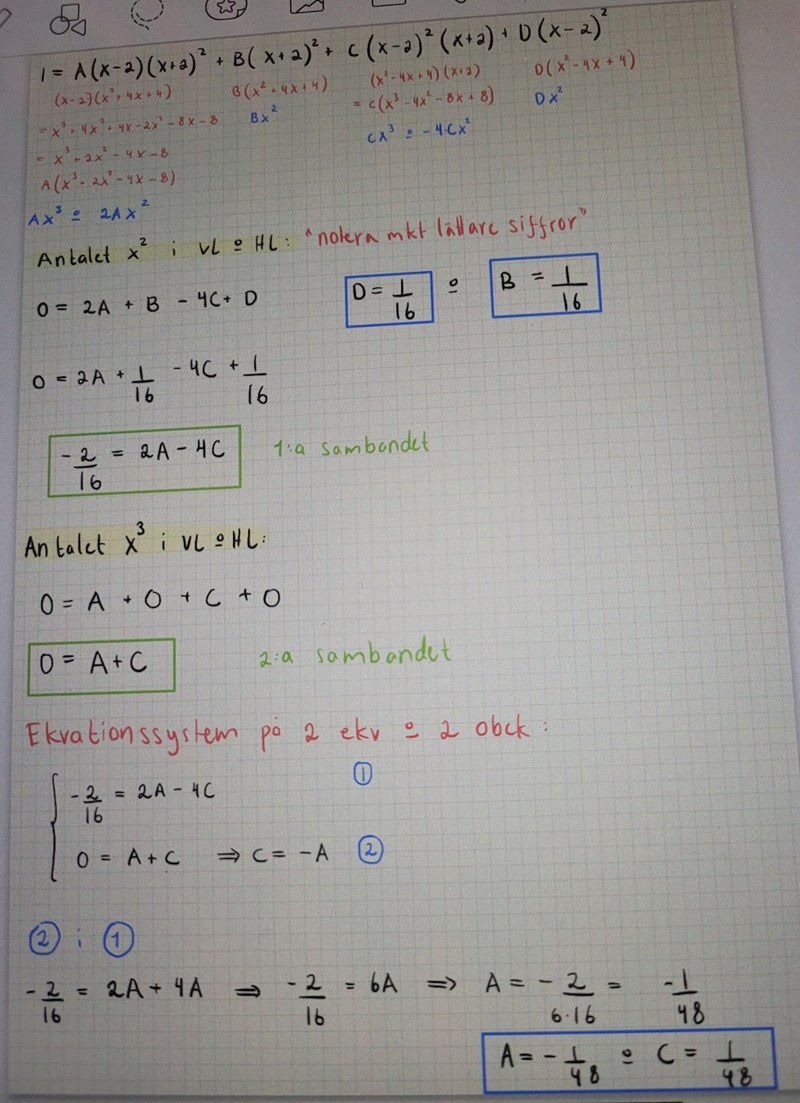 1 = A(x-2)(x+2)² + B(x+2)² + C(x-2)²(x+2) + D(x-2)²
(x-2)(x²+4x+4) B(x²+4x+4) (x²-4x+4)(x+2) D(x²-4x+4)
= x³+4x²+4x-2x²-8x-8 Bx² = C(x³-4x²-8x+8) Dx²
= x³+2x²-4x-8 Cx³ o -4·Cx²
A(x³+2x²-4x-8)
Ax³ o 2Ax²
Antalet x² i VL o HL: "notera mkt lättare siffror"
0 = 2A + B - 4C + D D = 1/16 o B = 1/16
0 = 2A + 1/16 - 4C + 1/16
-2/16 = 2A - 4C 1:a sambandet
Antalet x³ i VL o HL:
0 = A + 0 + C + 0
0 = A + C 2:a sambandet
Ekvationssystem på 2 ekv o 2 obek:
-2/16 = 2A - 4C ①
0 = A + C ⇒ C = -A ②
② i ①
-2/16 = 2A + 4A ⇒ -2/16 = 6A ⇒ A = -2/6·16 = -1/48
A = -1/48 o C = 1/48